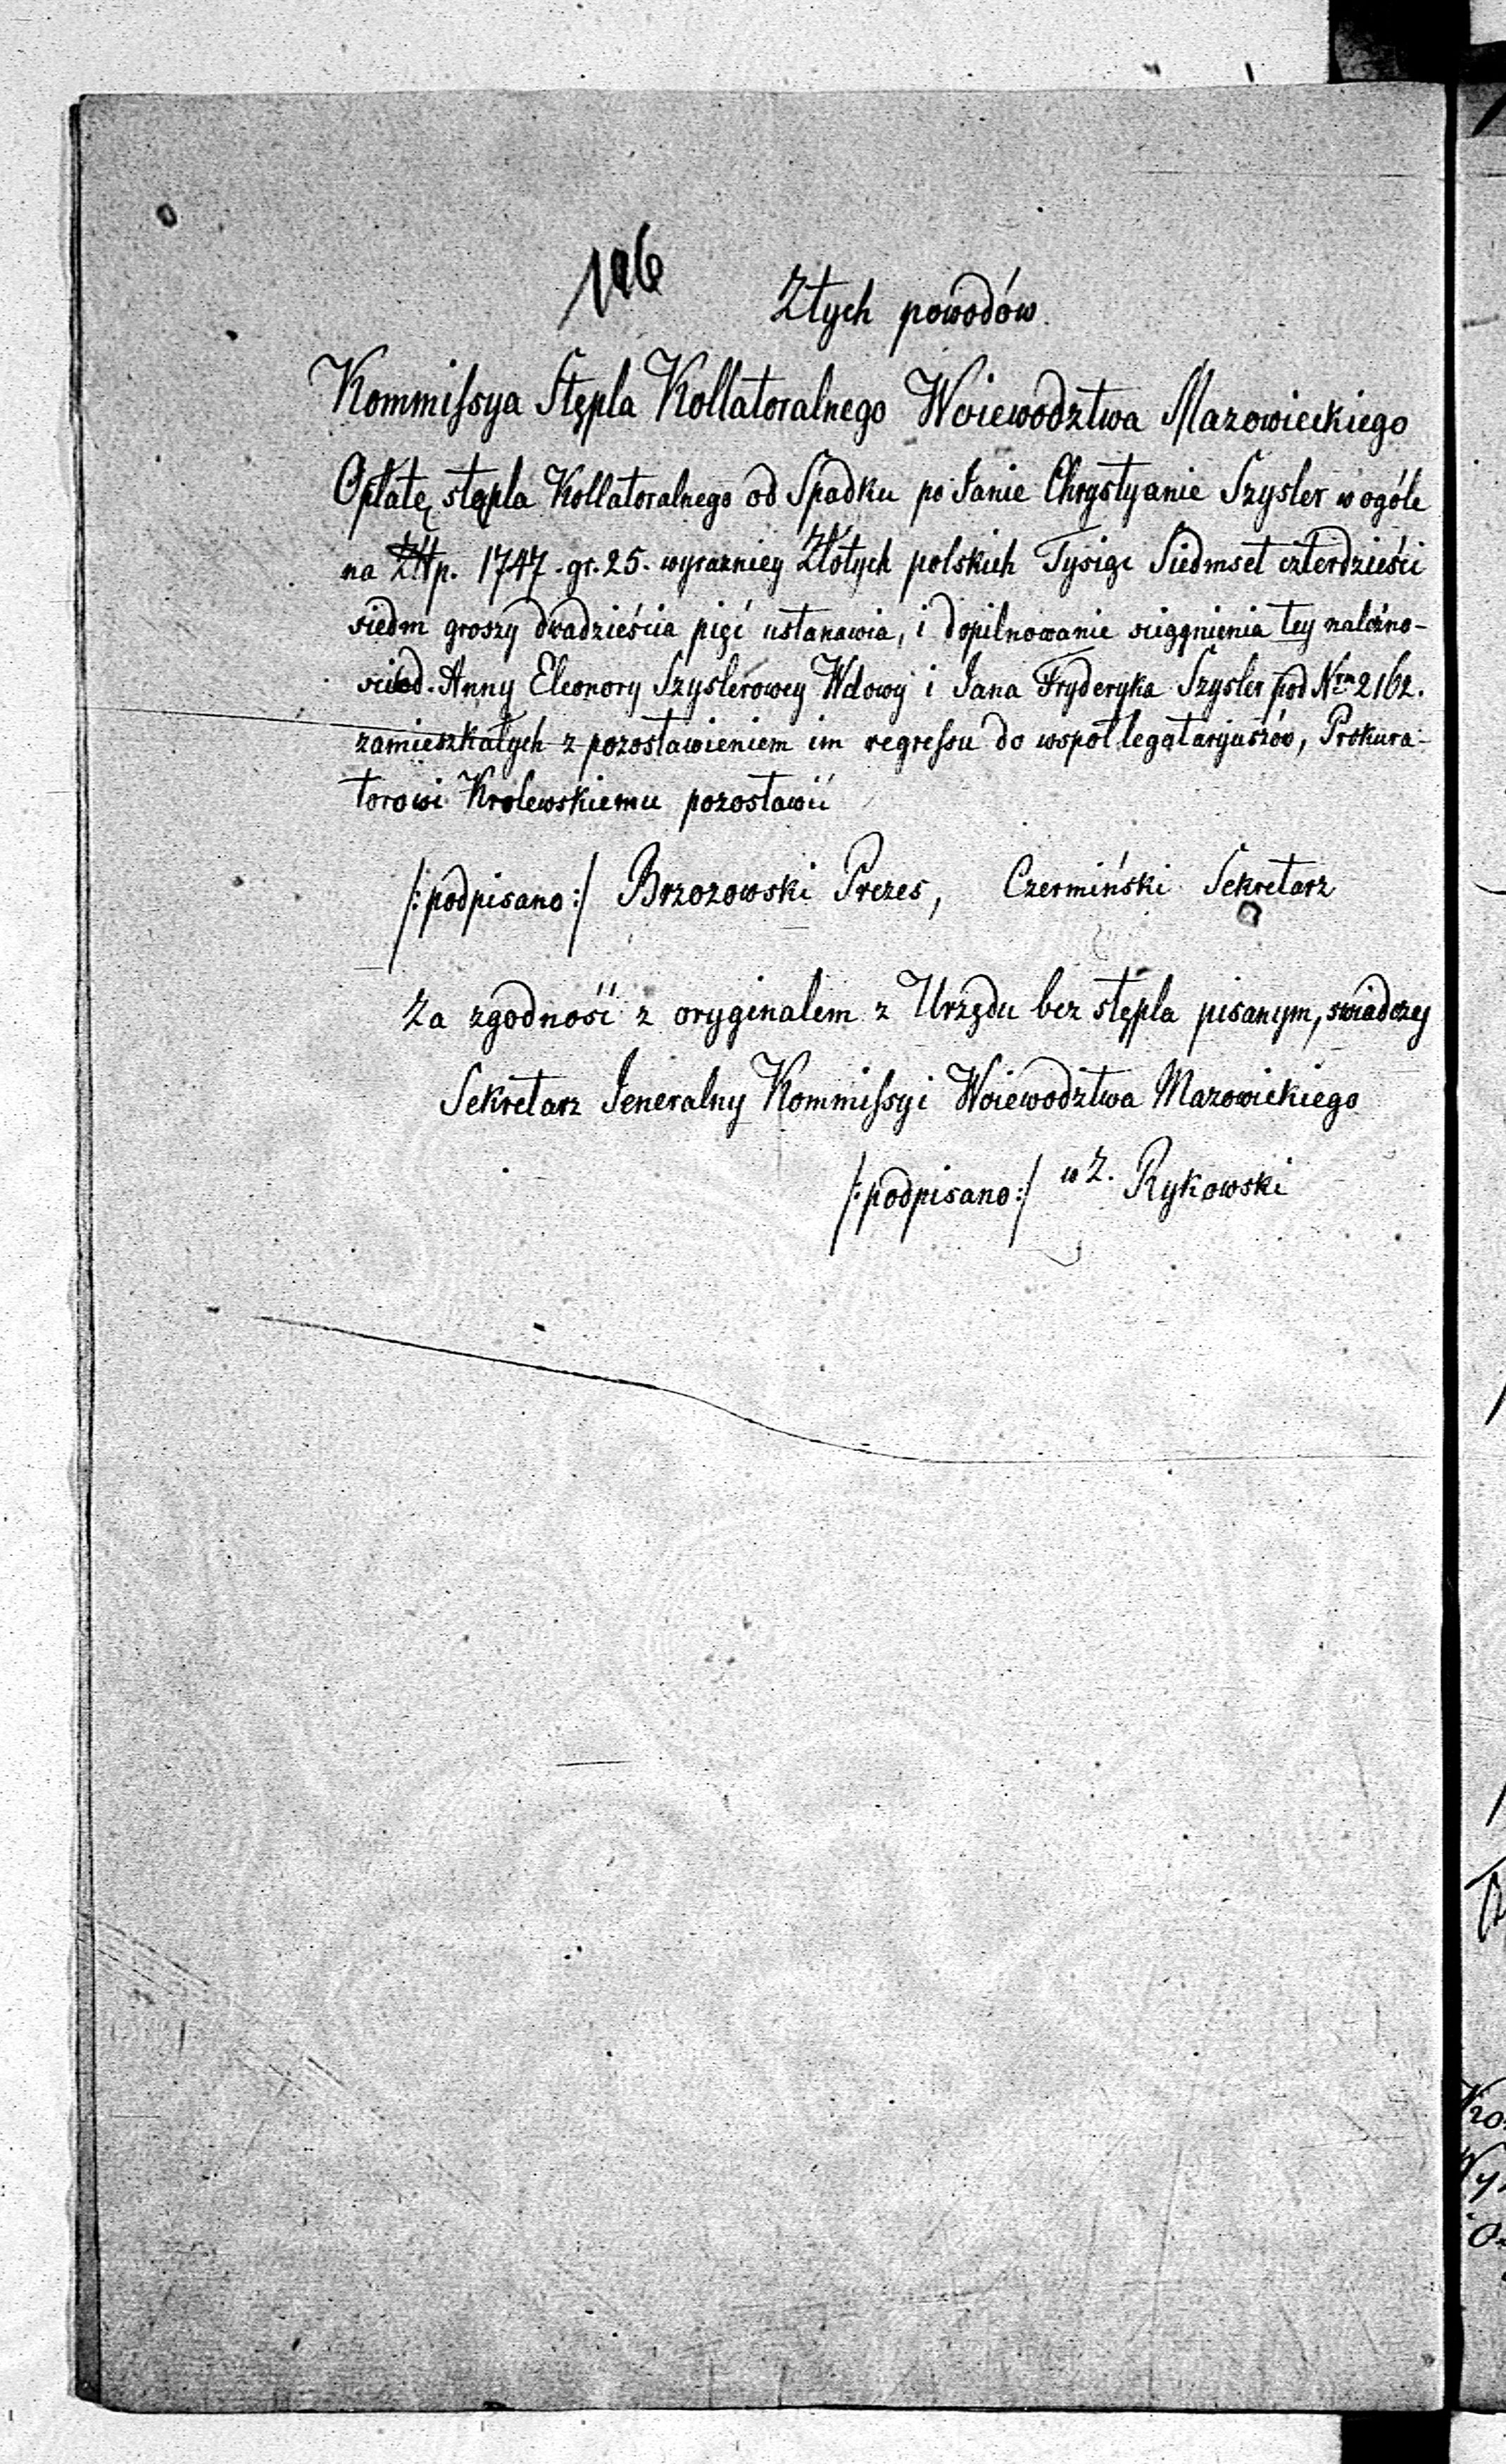 146
Z tych powodów
Kommissya Stępla Kollatoralnego Woiewodztwa Mazowieckiego
Opłatę stępla Kollatoralnego od Spadku po Janie Chrystyanie Szysler w ogóle
na Złtp. 1747. gr. 25. wyrazniey Złótych polskich Tysiąc Siedmset czterdzieści
siedm groszy dwadzieścia pięć ustanawia, i dopilnowanie sciągnienia tey należno-
sci od. Anny Eleonory Szyslerowey Wdowy i Jana Fryderyka Szysler pod Nrm 2162.
zamieszkałych z pozostawieniem im regressu do wspołlegataryuszów, Prokura-
torowi Królewskiemu pozostawić
/: podpisano :/ Brzozowski Prezes, Czermiński Sekretarz
Za zgodność z oryginałem z Urzędu bez stępla pisanym, swiadczy
Sekretarz Jeneralny Kommissyi Woiewodztwa Mazowieckiego
/: podpisano :/ w Z. Rykowski